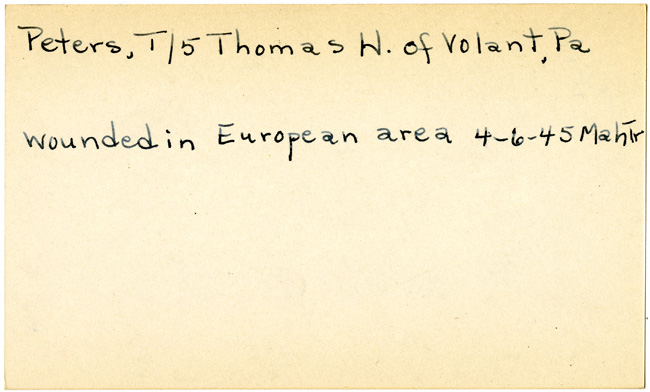 Peters, T/5 Thomas W. of Volant, Pa
wounded in European area 4-6-45 Mah Tr